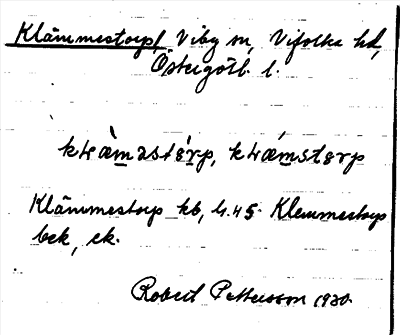 Klämmestorp, Viby sn, Vifolka hd,
Östergötl. l.
kɬæ̀məstɵ́rp, kɬǽmstɵrp
Klämmestorp kb, h. 45. Klemmestorp
bek, ek.
Robert Pettersson 1930.